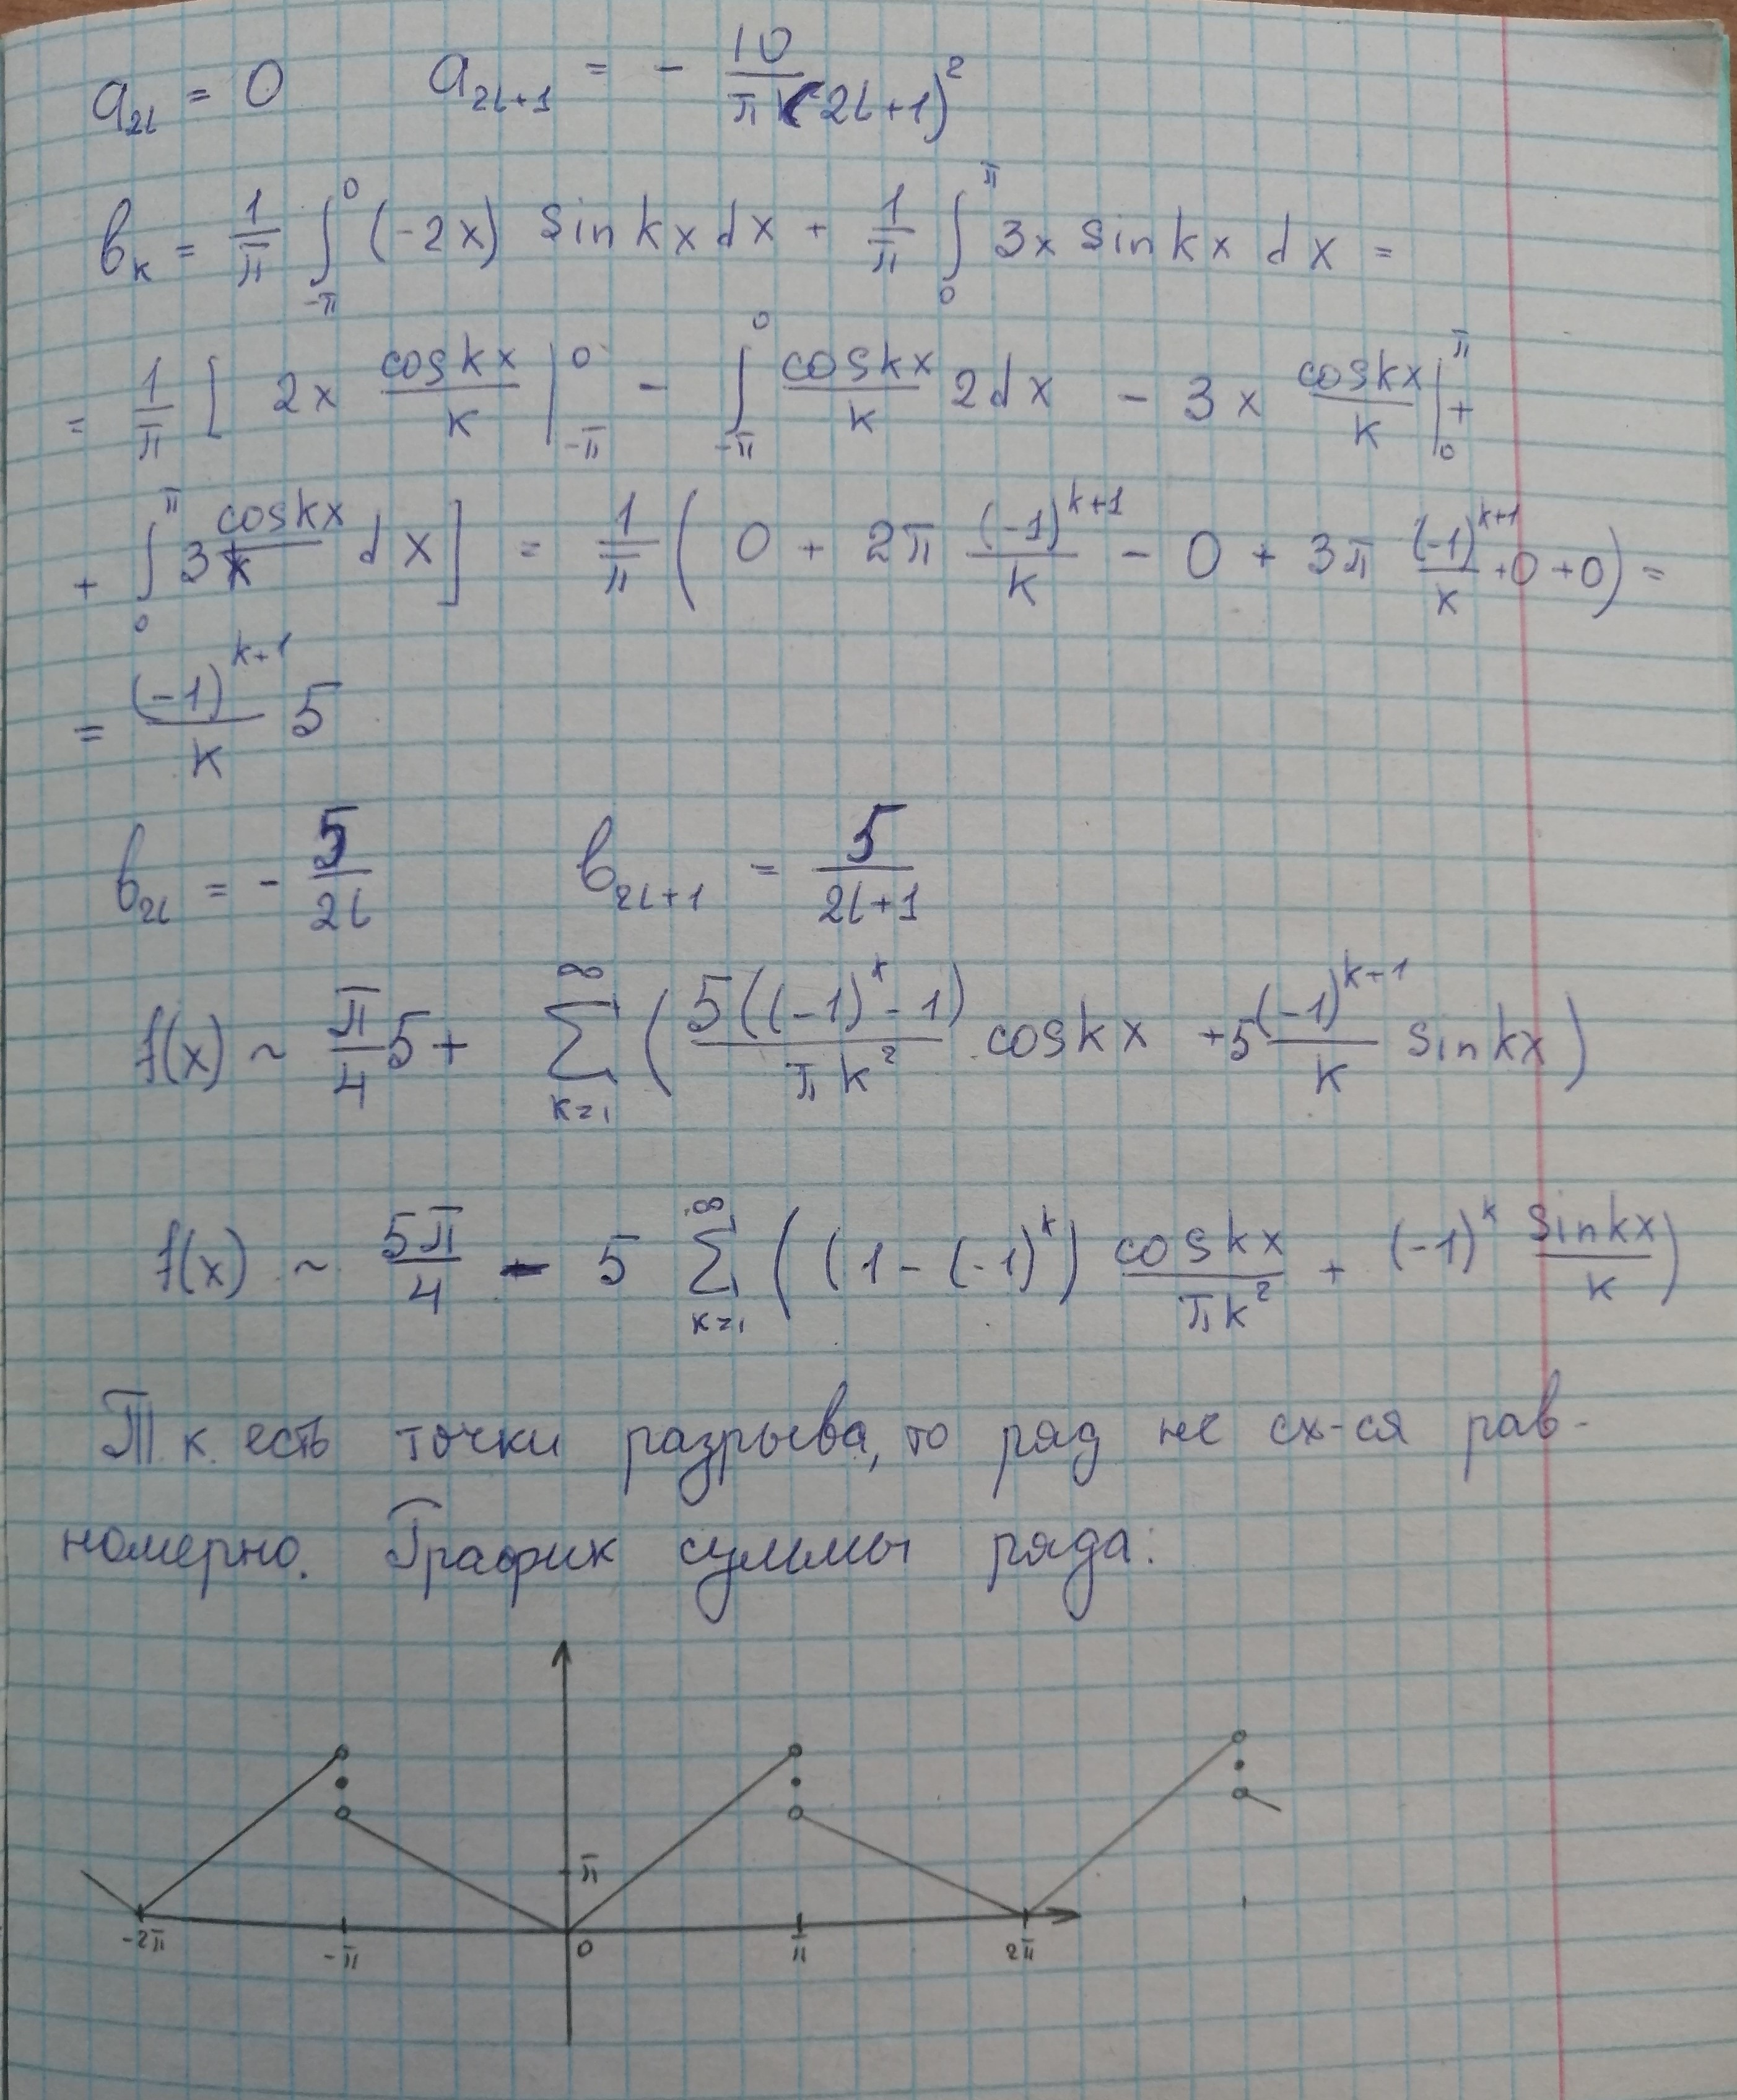 a_{2l} = 0 a_{2l+1} = - 10/(π(2l+1)^2)
b_k = 1/π ∫_{-π}^{0} (-2x) sin kx dx + 1/π ∫_{0}^{π} 3x sin kx dx =
= 1/π [ 2x cos kx/k |_{-π}^{0} - ∫_{-π}^{0} cos kx/k 2dx - 3x cos kx/k |_{0}^{π} +
+ ∫_{0}^{π} 3 cos kx/k dx ] = 1/π ( 0 + 2π (-1)^{k+1}/k - 0 + 3π (-1)^{k+1}/k + 0 + 0) =
= (-1)^{k+1}/k 5
b_{2l} = - 5/2l b_{2l+1} = 5/(2l+1)
f(x) ~ π/4 5 + ∑_{k=1}^{∞} ( 5((-1)^k - 1)/(πk^2) cos kx + 5 (-1)^{k+1}/k sin kx )
f(x) ~ 5π/4 - 5 ∑_{k=1}^{∞} ( (1 - (-1)^k) cos kx/(πk^2) + (-1)^k sin kx/k )
Т.к. есть точки разрыва, то ряд не сх-ся рав-
номерно. График суммы ряда:
π
-2π -π 0 π 2π